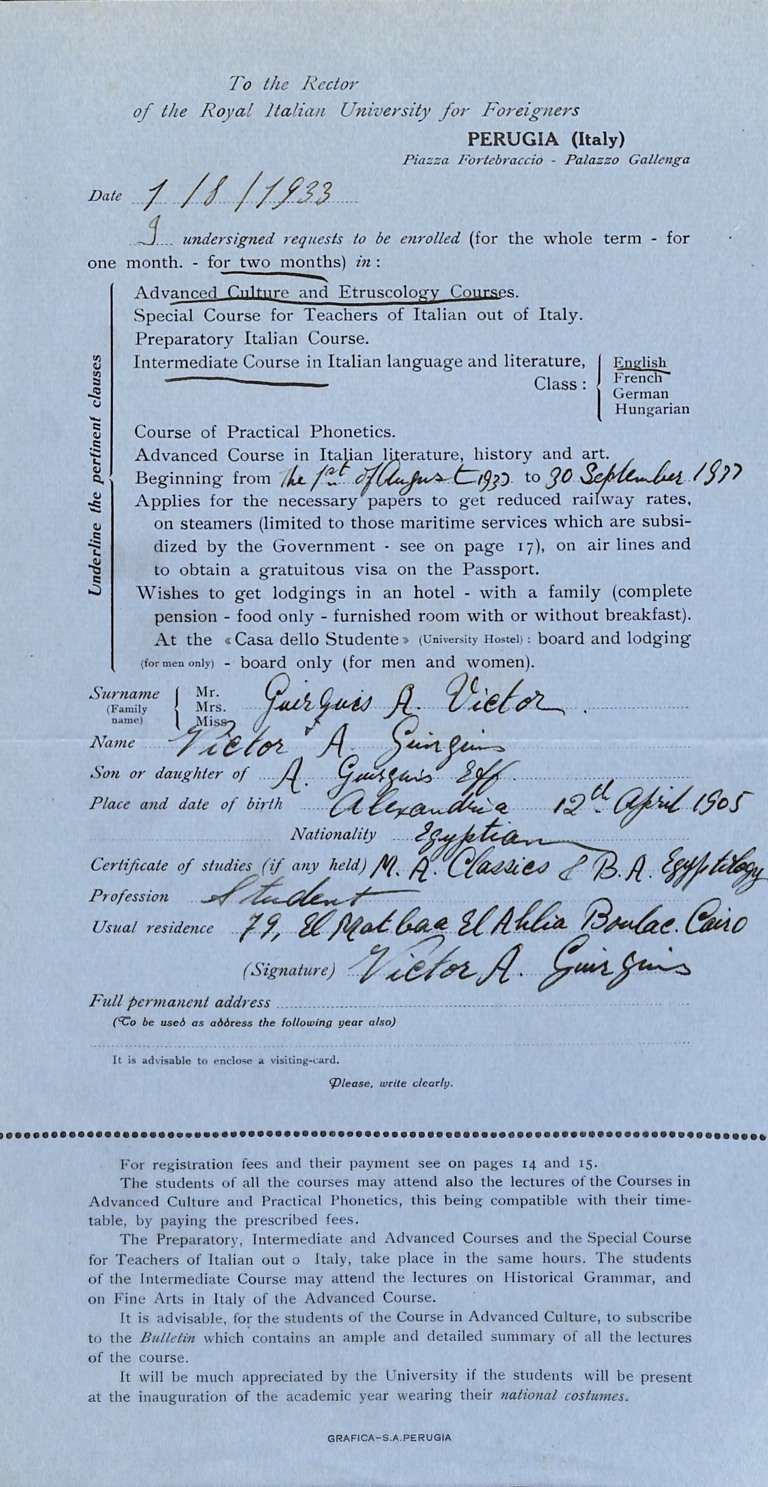 To the Rector
of the Royal Italian University for Foreigners
PERUGIA (Italy)
Piazza Fortebraccio - Palazzo Gallenga
Date 1/8/1933
I undersigned requests to be enrolled (for the whole term - for
one month. - for two months) in:
Underline the pertinent clauses
Advanced Culture and Etruscology Courses.
Special Course for Teachers of Italian out of Italy.
Preparatory Italian Course.
Intermediate Course in Italian language and literature,
Class:
English
French
German
Hungarian
Course of Practical Phonetics.
Advanced Course in Italian literature, history and art.
Beginning from the 1st of August 1933 to 30 September 1933
Applies for the necessary papers to get reduced railway rates,
on steamers (limited to those maritime services which are subsi-
dized by the Government - see on page 17), on air lines and
to obtain a gratuitous visa on the Passport.
Wishes to get lodgings in an hotel - with a family (complete
pension - food only - furnished room with or without breakfast).
At the «Casa dello Studente» (University Hostel): board and lodging
(for men only) - board only (for men and women).
Surname (Family name) Mr. Mrs. Miss Guirguis A. Victor
Name Victor A. Guirguis
Son or daughter of A. Guirguis Eff.
Place and date of birth Alexandria 12th April 1905
Nationality Egyptian
Certificate of studies (if any held) M. A. Classics & B. A. Egyptology
Profession Student
Usual residence 79, El Matbaa El Ahlia Boulac. Cairo
(Signature) Victor A. Guirguis
Full permanent address
(To be used as address the following year also)
It is advisable to enclose a visiting-card.
Please, write clearly.
For registration fees and their payment see on pages 14 and 15.
The students of all the courses may attend also the lectures of the Courses in
Advanced Culture and Practical Phonetics, this being compatible with their time-
table, by paying the prescribed fees.
The Preparatory, Intermediate and Advanced Courses and the Special Course
for Teachers of Italian out o Italy, take place in the same hours. The students
of the Intermediate Course may attend the lectures on Historical Grammar, and
on Fine Arts in Italy of the Advanced Course.
It is advisable, for the students of the Course in Advanced Culture, to subscribe
to the Bulletin which contains an ample and detailed summary of all the lectures
of the course.
It will be much appreciated by the University if the students will be present
at the inauguration of the academic year wearing their national costumes.
GRAFICA-S.A.PERUGIA